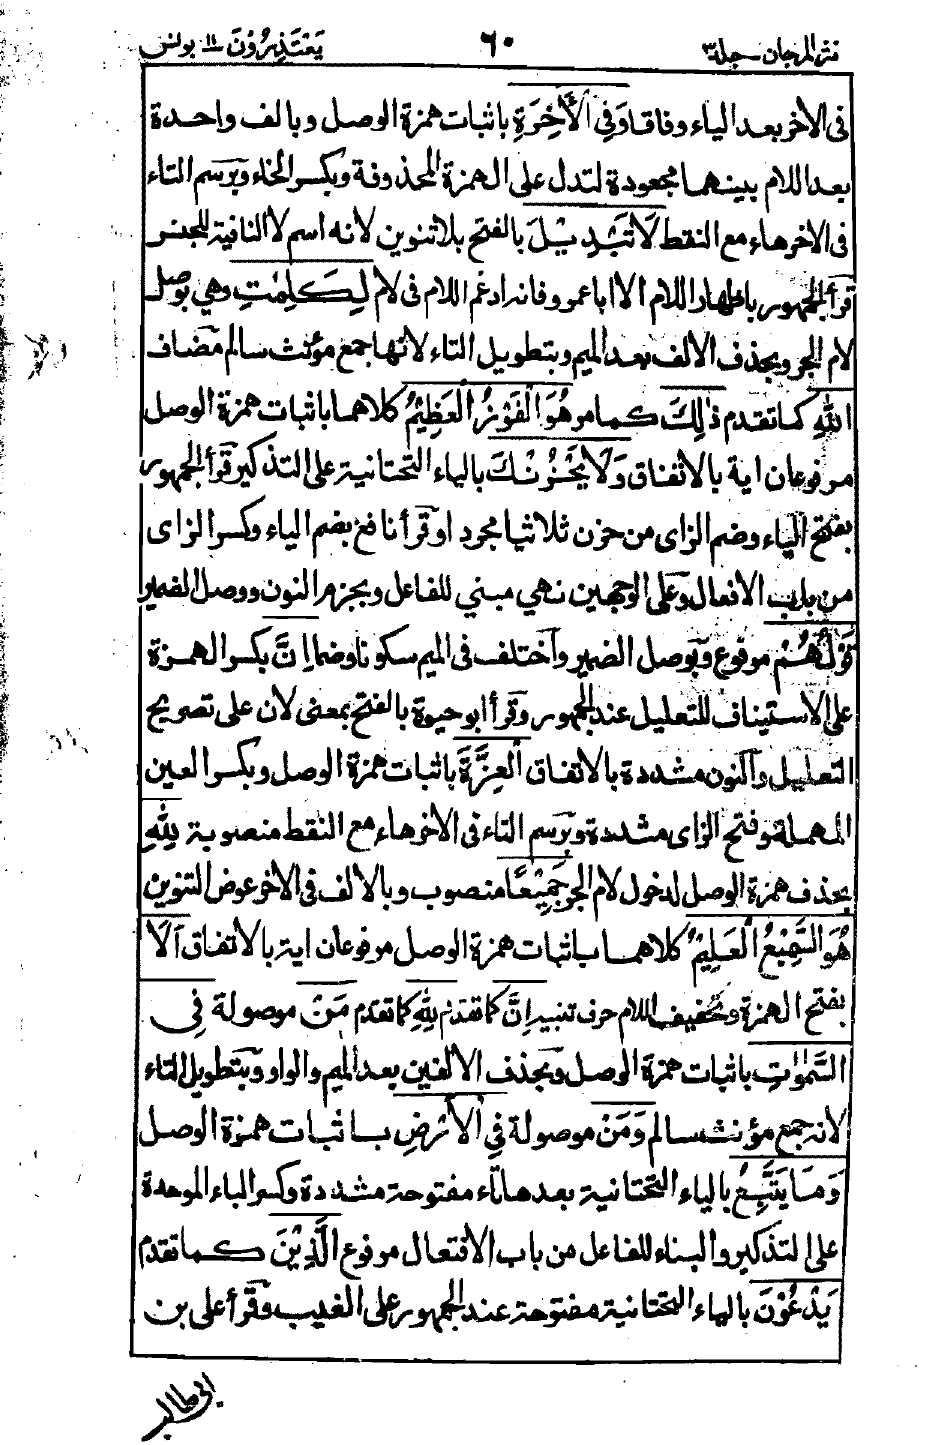 نثر المرجان - جلد٣
٦٠
يَعْتَذِرُوْنَ ١١ يونس
فى الاخر بعد الياء وفاقا وَفِى الْاٰخِرَةِ باثبات همزة الوصل وبالف واحدة
بعد اللام بينهما مجعودة لتدل على الهمزة المحذوفة وبكسر الخاء وبرسم التاء
فى الاخر هاء مع النقط لَا تَبْدِيْلَ بالفتح بلا تنوين لانه اسم لا النافية للجنس
قرأ الجمهور باظهار اللام الا ابا عمرو فانه ادغم اللام فى لام لِكَلِمٰتِ وهي بوصل
لام الجر وبحذف الالف بعد الميم وبتطويل التاء لانها جمع مؤنث سالم مضاف
اللّٰهِ كما تقدم ذٰلِكَ كما مر هُوَ الْفَوْزُ الْعَظِيْمُ كلاهما باثبات همزة الوصل
مرفوعان اية بالاتفاق وَلَا يَحْزُنْكَ بالياء التحتانية على التذكير قرأ الجمهور
بفتح الياء وضم الزاى من حزن ثلاثيا مجردا وقرأ نافع بضم الياء وكسر الزاى
من باب الافعال وعلى الوجهين نهي مبني للفاعل وبجزم النون ووصل الضمير
قَوْلُهُمْ مرفوع وبوصل الضمير واختلف فى الميم سكونا وضما اِنَّ بكسر الهمزة
على الاستيناف للتعليل عند الجمهور وقرأ ابو حيوة بالفتح بمعنى لان على تصريح
التعليل والنون مشددة بالاتفاق الْعِزَّةَ باثبات همزة الوصل وبكسر العين
المهملة وفتح الزاى مشددة وبرسم التاء فى الاخر هاء مع النقط منصوبة لِلّٰهِ
بحذف همزة الوصل لدخول لام الجر جَمِيْعًا منصوب وبالالف فى الاخر عوض التنوين
هُوَ السَّمِيْعُ الْعَلِيْمُ كلاهما باثبات همزة الوصل مرفوعان اية بالاتفاق اَلَا
بفتح الهمزة وتخفيف اللام حرف تنبيه اِنَّ كما تقدم لِلّٰهِ كما تقدم مَنْ موصولة فِى
السَّمٰوٰتِ باثبات همزة الوصل وبحذف الالفين بعد الميم والواو وبتطويل التاء
لانه جمع مؤنث سالم وَمَنْ موصولة فِى الْاَرْضِ باثبات همزة الوصل
وَمَا يَتَّبِعُ بالياء التحتانية بعدها تاء مفتوحة مشددة وكسر الباء الموحدة
على التذكير والبناء للفاعل من باب الافتعال مرفوع الَّذِيْنَ كما تقدم
يَدْعُوْنَ بالياء التحتانية مفتوحة عند الجمهور على الغيب وقرأ على بن
ابى طالب